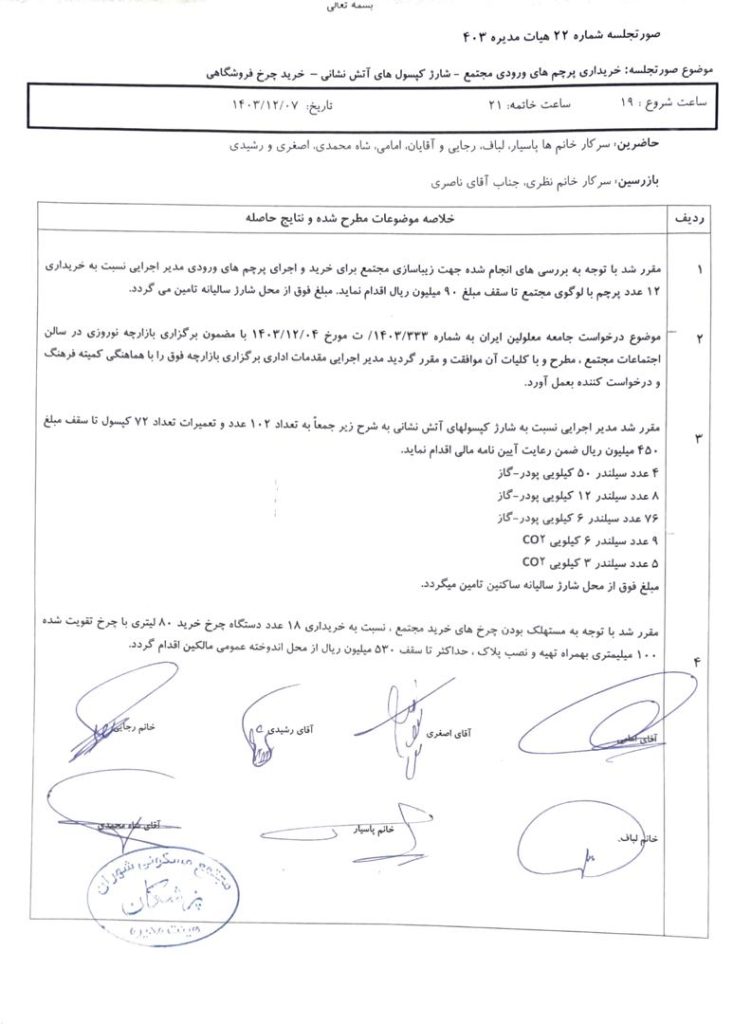 بسمه تعالی
صورتجلسه شماره ۲۲ هیات مدیره ۴۰۳
موضوع صورتجلسه: خریداری پرچم های ورودی مجتمع - شارژ کپسول های آتش نشانی – خرید چرخ فروشگاهی
ساعت شروع : ۱۹ ساعت خاتمه: ۲۱ تاریخ: ۱۴۰۳/۱۲/۰۷
حاضرین: سرکار خانم ها پاسیار، لباف، رجایی و آقایان، امامی، شاه محمدی، اصغری و رشیدی
بازرسین: سرکار خانم نظری، جناب آقای ناصری
ردیف خلاصه موضوعات مطرح شده و نتایج حاصله
۱ مقرر شد با توجه به بررسی های انجام شده جهت زیباسازی مجتمع برای خرید و اجرای پرچم های ورودی مدیر اجرایی نسبت به خریداری
۱۲ عدد پرچم با لوگوی مجتمع تا سقف مبلغ ۹۰ میلیون ریال اقدام نماید. مبلغ فوق از محل شارژ سالیانه تامین می گردد.
۲ موضوع درخواست جامعه معلولین ایران به شماره ۱۴۰۳/۳۳۳/ ت مورخ ۱۴۰۳/۱۲/۰۴ با مضمون برگزاری بازارچه نوروزی در سالن
اجتماعات مجتمع ، مطرح و با کلیات آن موافقت و مقرر گردید مدیر اجرایی مقدمات اداری برگزاری بازارچه فوق را با هماهنگی کمیته فرهنگ
و درخواست کننده بعمل آورد.
۳ مقرر شد مدیر اجرایی نسبت به شارژ کپسولهای آتش نشانی به شرح زیر جمعاً به تعداد ۱۰۲ عدد و تعمیرات تعداد ۷۲ کپسول تا سقف مبلغ
۴۵۰ میلیون ریال ضمن رعایت آیین نامه مالی اقدام نماید.
۴ عدد سیلندر ۵۰ کیلویی پودر-گاز
۸ عدد سیلندر ۱۲ کیلویی پودر-گاز
۷۶ عدد سیلندر ۶ کیلویی پودر-گاز
۹ عدد سیلندر ۶ کیلویی CO۲
۵ عدد سیلندر ۳ کیلویی CO۲
مبلغ فوق از محل شارژ سالیانه ساکنین تامین میگردد.
۴ مقرر شد با توجه به مستهلک بودن چرخ های خرید مجتمع ، نسبت به خریداری ۱۸ عدد دستگاه چرخ خرید ۸۰ لیتری با چرخ تقویت شده
۱۰۰ میلیمتری بهمراه تهیه و نصب پلاک ، حداکثر تا سقف ۵۳۰ میلیون ریال از محل اندوخته عمومی مالکین اقدام گردد.
آقای امامی آقای اصغری آقای رشیدی خانم رجایی
خانم لباف. خانم پاسیار آقای شاه محمدی
مجتمع مسکونی
پزشکان
هیئت مدیره